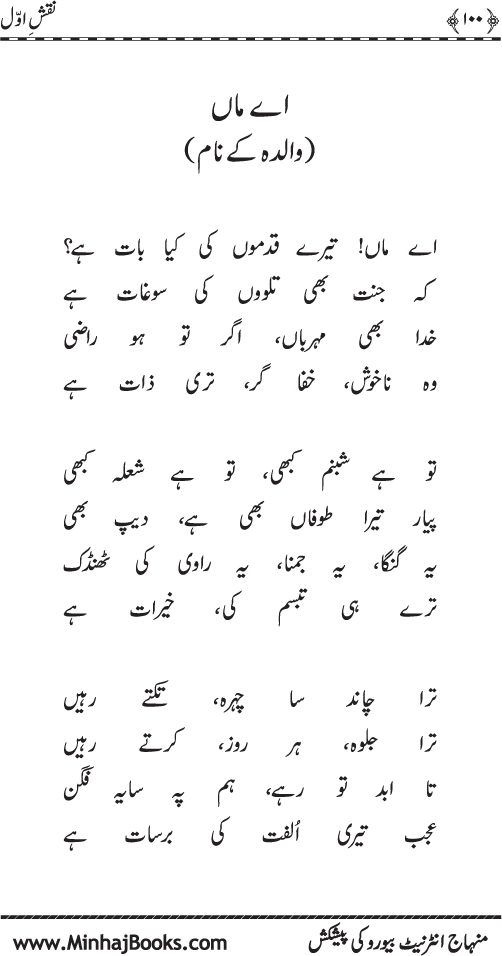 ﴿۱۰۰﴾ نقشِ اوّل
اے ماں
(والدہ کے نام)
اے ماں! تیرے قدموں کی کیا بات ہے؟
کہ جنت بھی تلووں کی سوغات ہے
خدا بھی مہرباں، اگر تو ہو راضی
وہ ناخوش، خفا گر، تری ذات ہے
تو ہے شبنم کبھی، تو ہے شعلہ کبھی
پیار تیرا طوفاں بھی ہے، دیپ بھی
یہ گنگا، یہ جمنا، یہ راوی کی ٹھنڈک
ترے ہی تبسم کی، خیرات ہے
ترا چاند سا چہرہ، تکتے رہیں
ترا جلوہ، ہر روز، کرتے رہیں
تا ابد تو رہے، ہم پہ سایہ فگن
عجب تیری اُلفت کی برسات ہے
منہاج انٹرنیٹ بیورو کی پیشکش www.MinhajBooks.com